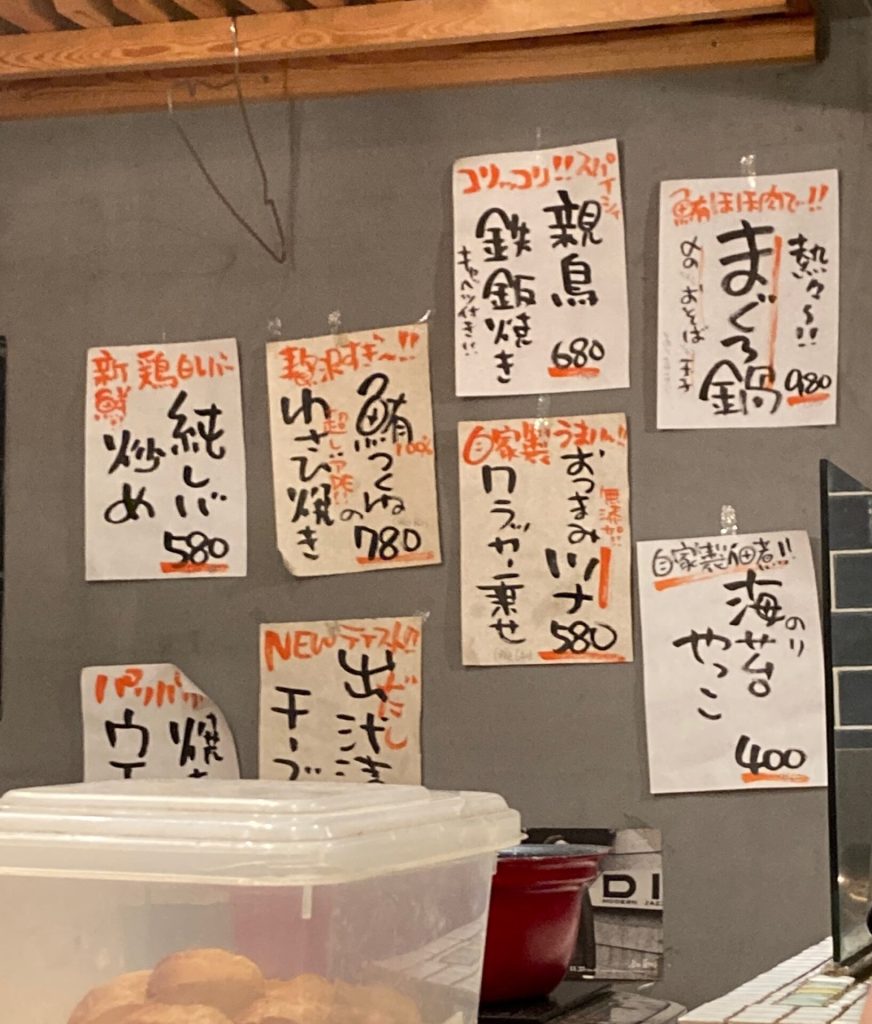 コリッコリ!!スパイシー
親鳥
鉄鈑焼き
キャベツ付き!!
680
鮪ほほ肉で!!
熱々〜!!
まぐろ
鍋
〆の おそば
980
新鮮
鶏白レバー
純レバ
炒め
580
贅沢すぎ〜!!
鮪つくね
100%
の
超レアDE!!
わさび焼き
780
自家製 うまいん!!
無添加!!
おつまみツナ
クラッカー乗せ
580
自家製佃煮!!
海苔
のり
やっこ
400
パリパリ
焼き
ウ
NEWテイスト!!
出汁
だし
チーズ
DI
MODERN JAZZ